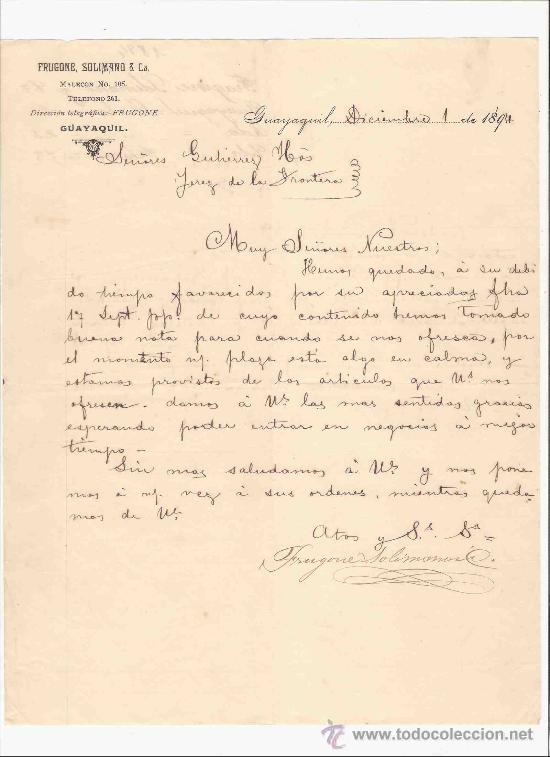 FRUGONE, SOLIMANO & Ca.
MALECON No. 105.
TELEFONO 261.
Dirección telegráfica:-FRUGONE
GUAYAQUIL.
Guayaquil, Diciembre 1 de 1894
Señores Gutierrez Hos
Jerez de la Frontera
Muy Señores Nuestros;
Hemos quedado, á su debi
do tiempo favorecidos por su apreciadas fha
17 Sept. ppº. de cuyo contenido hemos tomado
buena nota para cuando se nos ofresca, por
el momento n/. plaza está algo en calma, y
estamos provistos de los articulos que Us nos
ofresen - damos á Us las mas sentidas gracias
esperando poder entrar en negocios á mejor
tiempo -
Sin mas saludamos á Us y nos pone
mos á n/. vez á sus ordenes, mientras queda
mos de Us
Atos y S.s Ss
Frugone Solimano & C.
www.todocoleccion.net